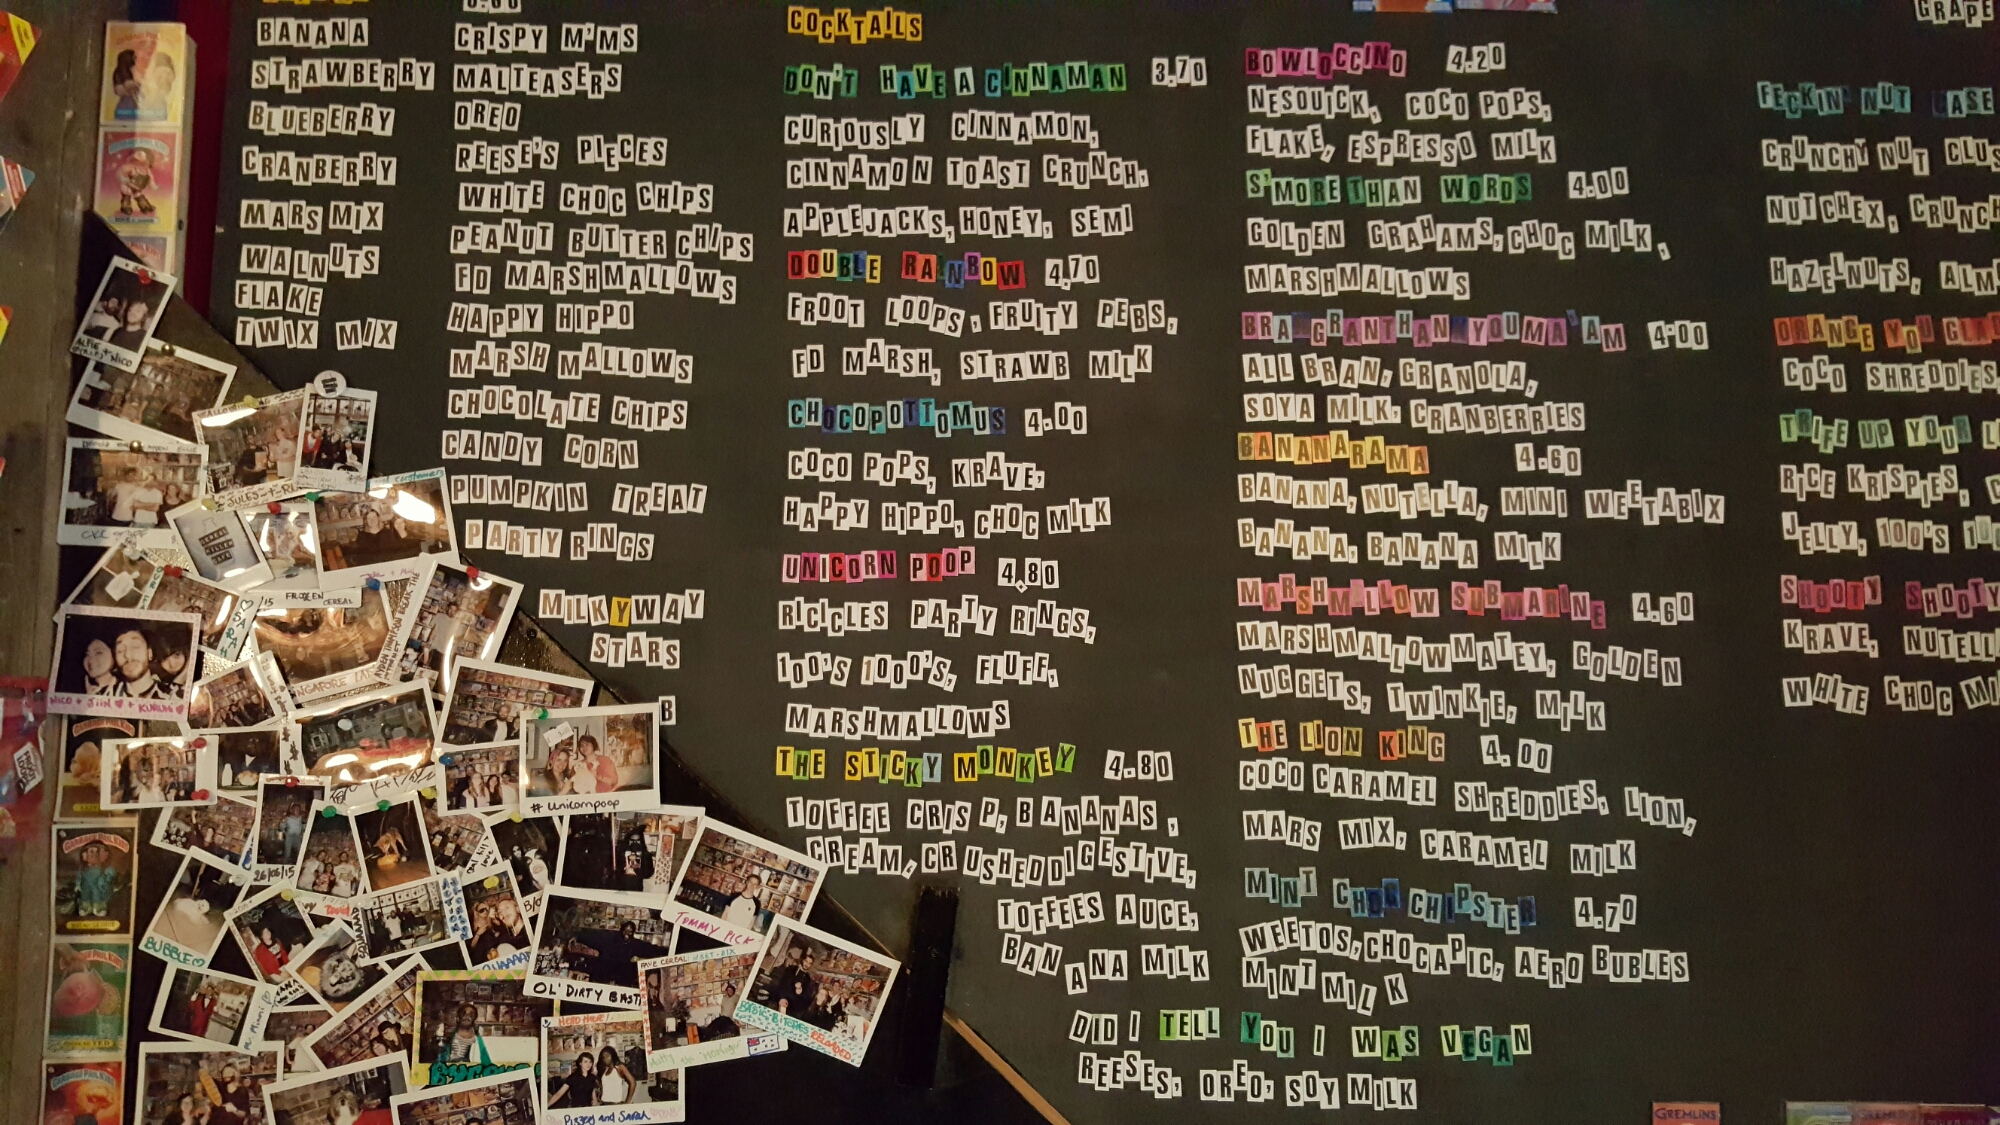 BANANA
STRAWBERRY
BLUEBERRY
CRANBERRY
MARS MIX
WALNUTS
FLAKE
TWIX MIX
CRISPY M'MS
MALTEASERS
OREO
REESE'S PIECES
WHITE CHOC CHIPS
PEANUT BUTTER CHIPS
FD MARSHMALLOWS
HAPPY HIPPO
MARSH MALLOWS
CHOCOLATE CHIPS
CANDY CORN
PUMPKIN TREAT
PARTY RINGS
MILKYWAY
STARS
B
COCKTAILS
DON'T HAVE A CINNAMAN 3.70
CURIOUSLY CINNAMON,
CINNAMON TOAST CRUNCH,
APPLEJACKS, HONEY, SEMI
DOUBLE RAINBOW 4.70
FROOT LOOPS, FRUITY PEBS,
FD MARSH, STRAWB MILK
CHOCOPOTTOMUS 4.00
COCO POPS, KRAVE,
HAPPY HIPPO, CHOC MILK
UNICORN POOP 4.80
RICICLES PARTY RINGS,
100'S 1000'S, FLUFF,
MARSHMALLOWS
THE STICKY MONKEY 4.80
TOFFEE CRISP, BANANAS,
CREAM, CRUSHED DIGESTIVE,
TOFFEE SAUCE,
BANANA MILK
BOWLOCCINO 4.20
NESQUICK, COCO POPS,
FLAKE, ESPRESSO MILK
S'MORE THAN WORDS 4.00
GOLDEN GRAHAMS, CHOC MILK,
MARSHMALLOWS
BRANGRANTHANKYOUMA'AM 4.00
ALL BRAN, GRANOLA,
SOYA MILK, CRANBERRIES
BANANARAMA 4.60
BANANA, NUTELLA, MINI WEETABIX
BANANA, BANANA MILK
MARSHMALLOW SUBMARINE 4.60
MARSHMALLOWMATEY, GOLDEN
NUGGETS, TWINKIE, MILK
THE LION KING 4.00
COCO CARAMEL SHREDDIES, LION,
MARS MIX, CARAMEL MILK
MINT CHOC CHIPSTER 4.70
WEETOS, CHOCAPIC, AERO BUBLES
MINT MILK
DID I TELL YOU I WAS VEGAN
REESES, OREO, SOY MILK
GRAPE
FECKIN' NUT CASE
CRUNCHY NUT CLUS
NUTCHEX, CRUNCH
HAZELNUTS, ALM
ORANGE YOU GLA
COCO SHREDDIES,
TRIFE UP YOUR L
RICE KRISPIES, C
JELLY, 100'S 100
SHOOTY SHOOTY
KRAVE, NUTELL
WHITE CHOC MI
ALFIE + NICO
JULES
FROZEN CEREAL
NICO + JIIN + KURUMI
# Unicornpoop
26/06/15
BUBBLE
TOMMY PICK
OL' DIRTY BAST
BASIC BITCHES RELOADED
Pizzey and Sarah
GREMLINS